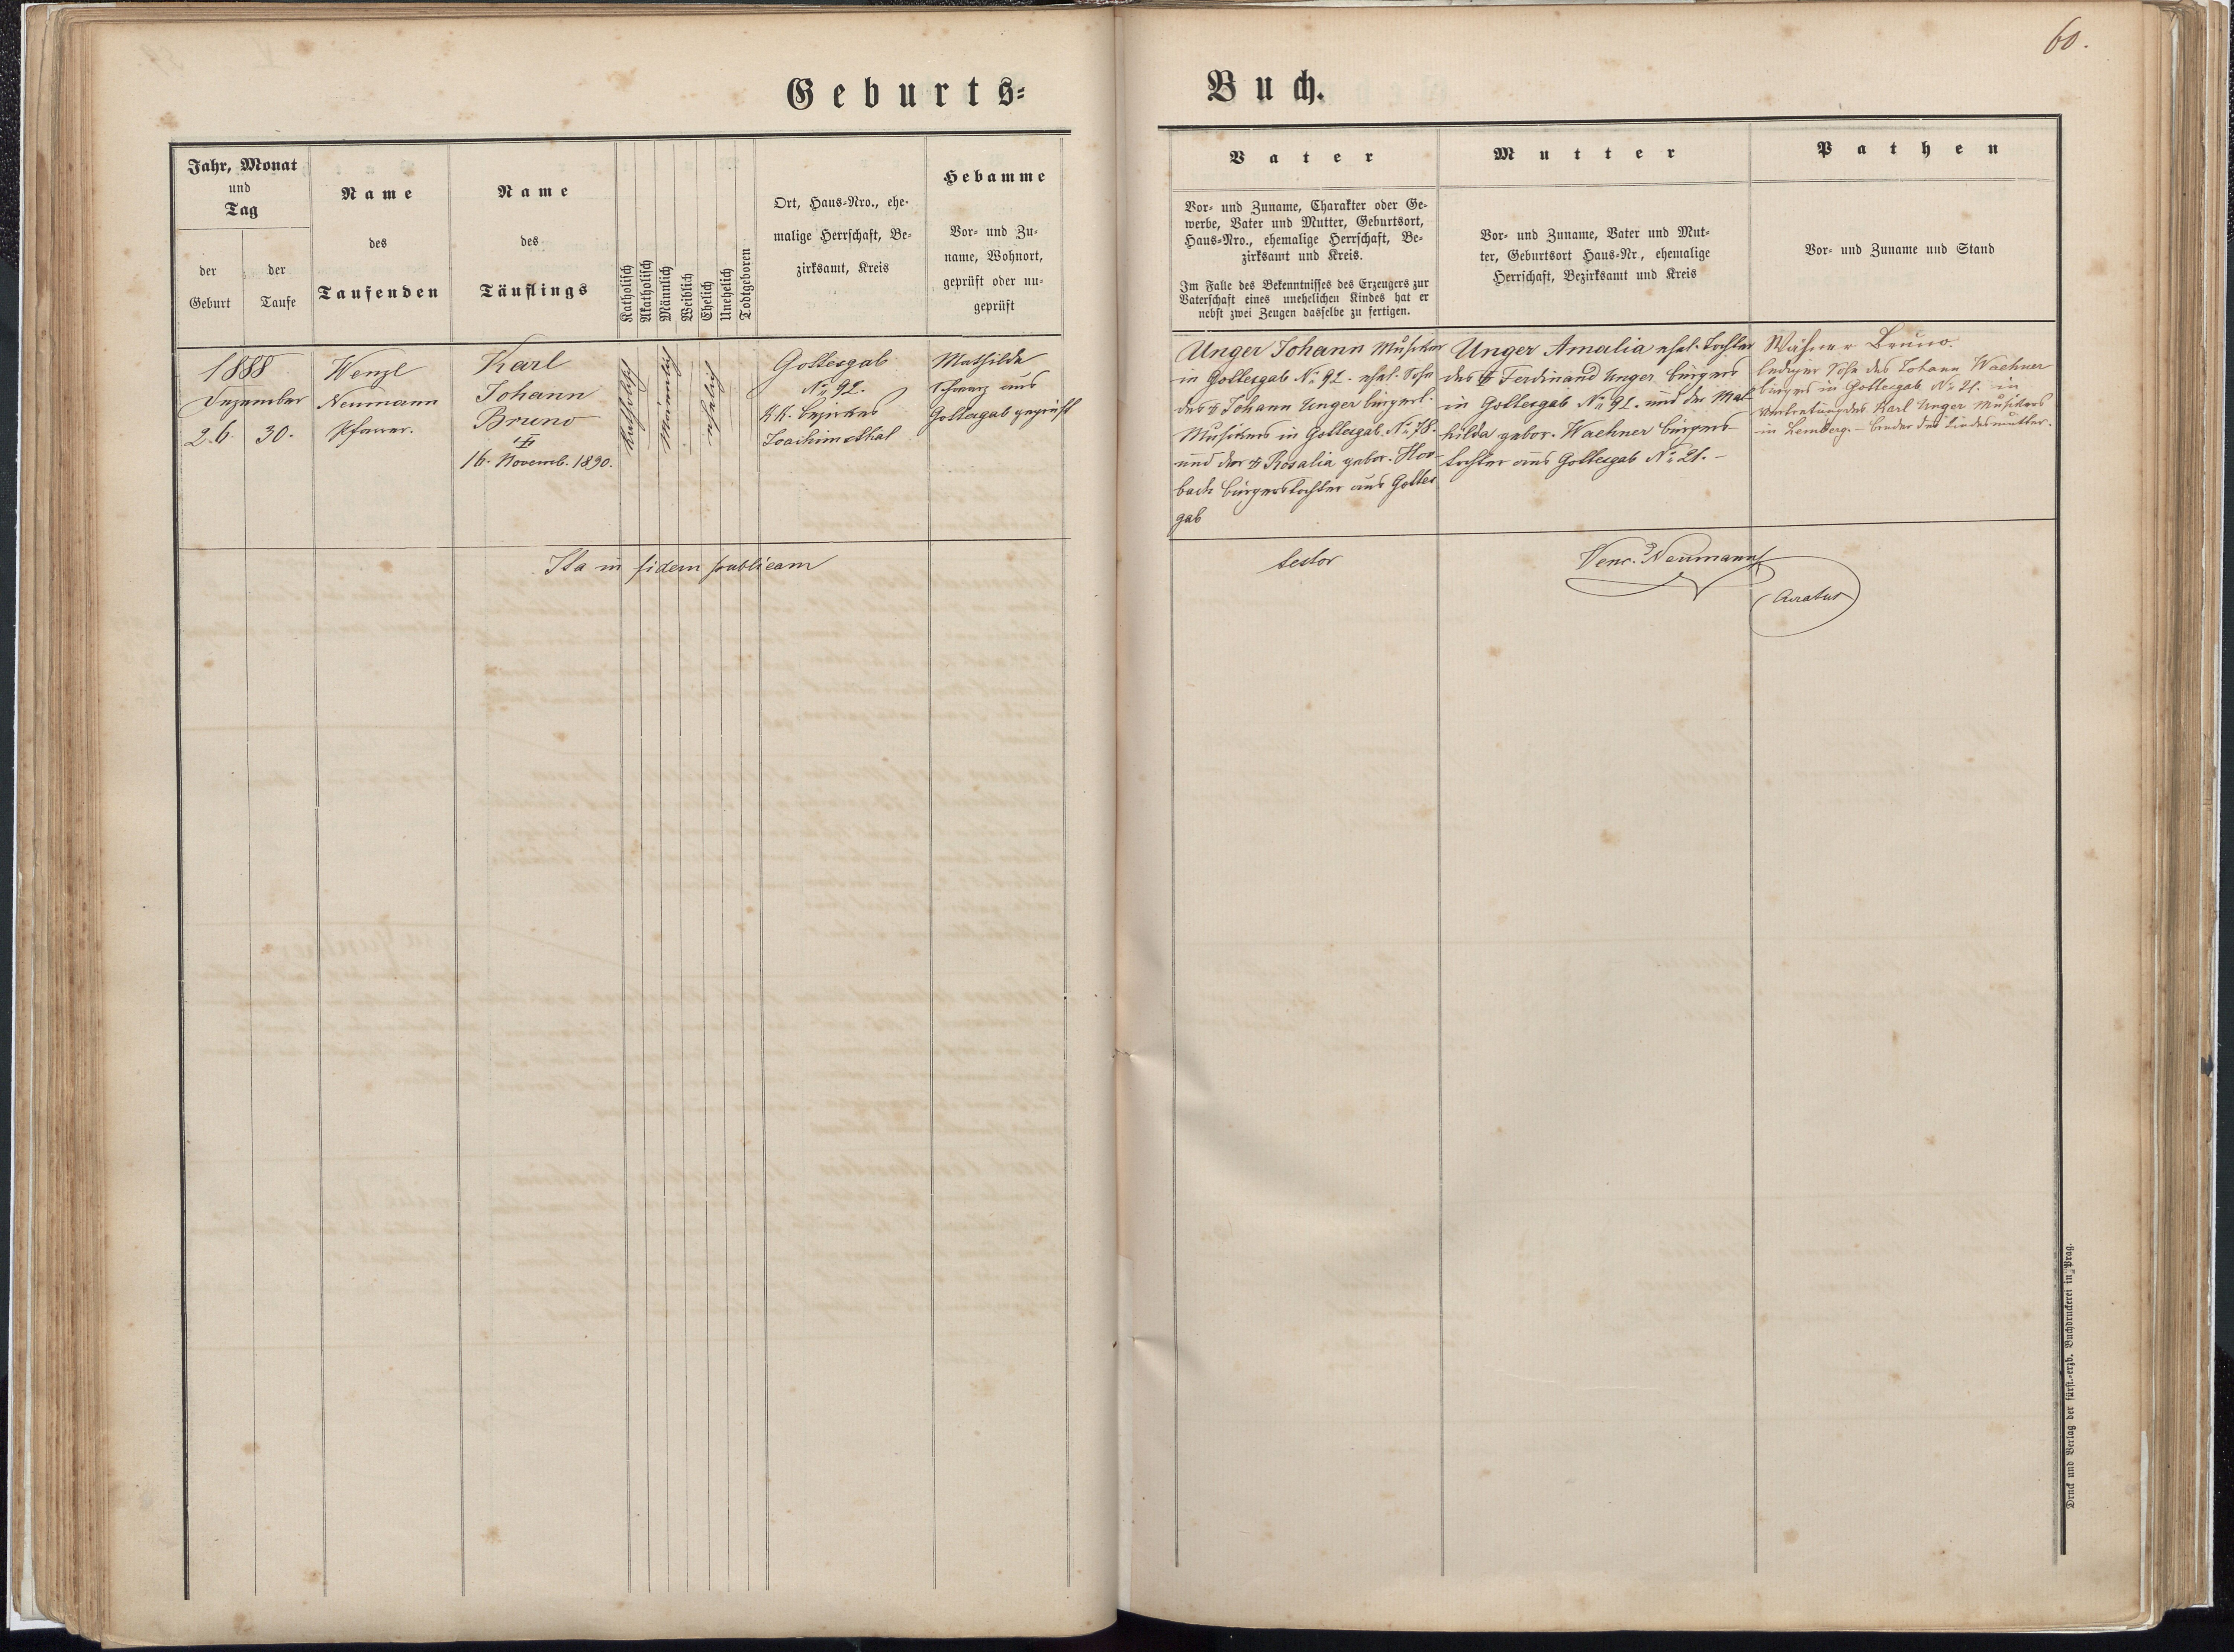 60.
Geburts=
Buch.
Jahr, Monat
und
Tag
der
Geburt
der
Taufe
Name
des
Taufenden
Name
des
Täuflings
Katholisch
Akatholisch
Männlich
Weiblich
Ehelich
Unehelich
Todtgeboren
Ort, Haus-Nro., ehe-
malige Herrschaft, Be-
zirksamt, Kreis
Hebamme
Vor- und Zu-
name, Wohnort,
geprüft oder nu-
geprüft
Vater
Vor- und Zuname, Charakter oder Ge-
werbe, Vater und Mutter, Geburtsort,
Haus-Nro., ehemalige Herrschaft, Be-
zirksamt und Kreis.
Im Falle des Bekenntnisses des Erzeugers zur
Vaterschaft eines unehelichen Kindes hat er
nebst zwei Zeugen dasselbe zu fertigen.
Mutter
Vor- und Zuname, Vater und Mut-
ter, Geburtsort Haus-Nr, ehemalige
Herrschaft, Bezirksamt und Kreis
Pathen
Vor- und Zuname und Stand
1888
Dezember
26. 30.
Wenzl
Neumann
Pfarrer.
Karl
Johann
Bruno
16. Novemb. 1890.
Katholisch
Männlich
ehelich
Gottesgab
No. 92.
K.K. Bezirkes
Joachimsthal
Mathilde
Schwarz aus
Gottesgab geprüft
Unger Johann Musiker
in Gottesgab No. 92. ehel. Sohn
des † Johann Unger bürgerl.
Musikers in Gottesgab No. 78.
und der † Rosalia gebor. Hor-
bach Bürgerstochter aus Gottes
gab
Unger Amalia ehel. Tochter
des † Ferdinand Unger Bürgers
in Gottesgab No. 92. und der Mat-
hilda gebor. Waehner Bürgers-
tochter aus Gottesgab No. 21.-
Wähner Bruno.
lediger Sohn des Johann Waehner
Bürgers in Gottesgab No. 21. in
Vertretung des Karl Unger Musikers
in Lemberg. - Bruder der Kindesmutter.
Ita in fidem publicam
testor
Venc. Neumann
Curatus
Druck und Verlag der fürst.-erzb. Buchdruckerei in Prag.